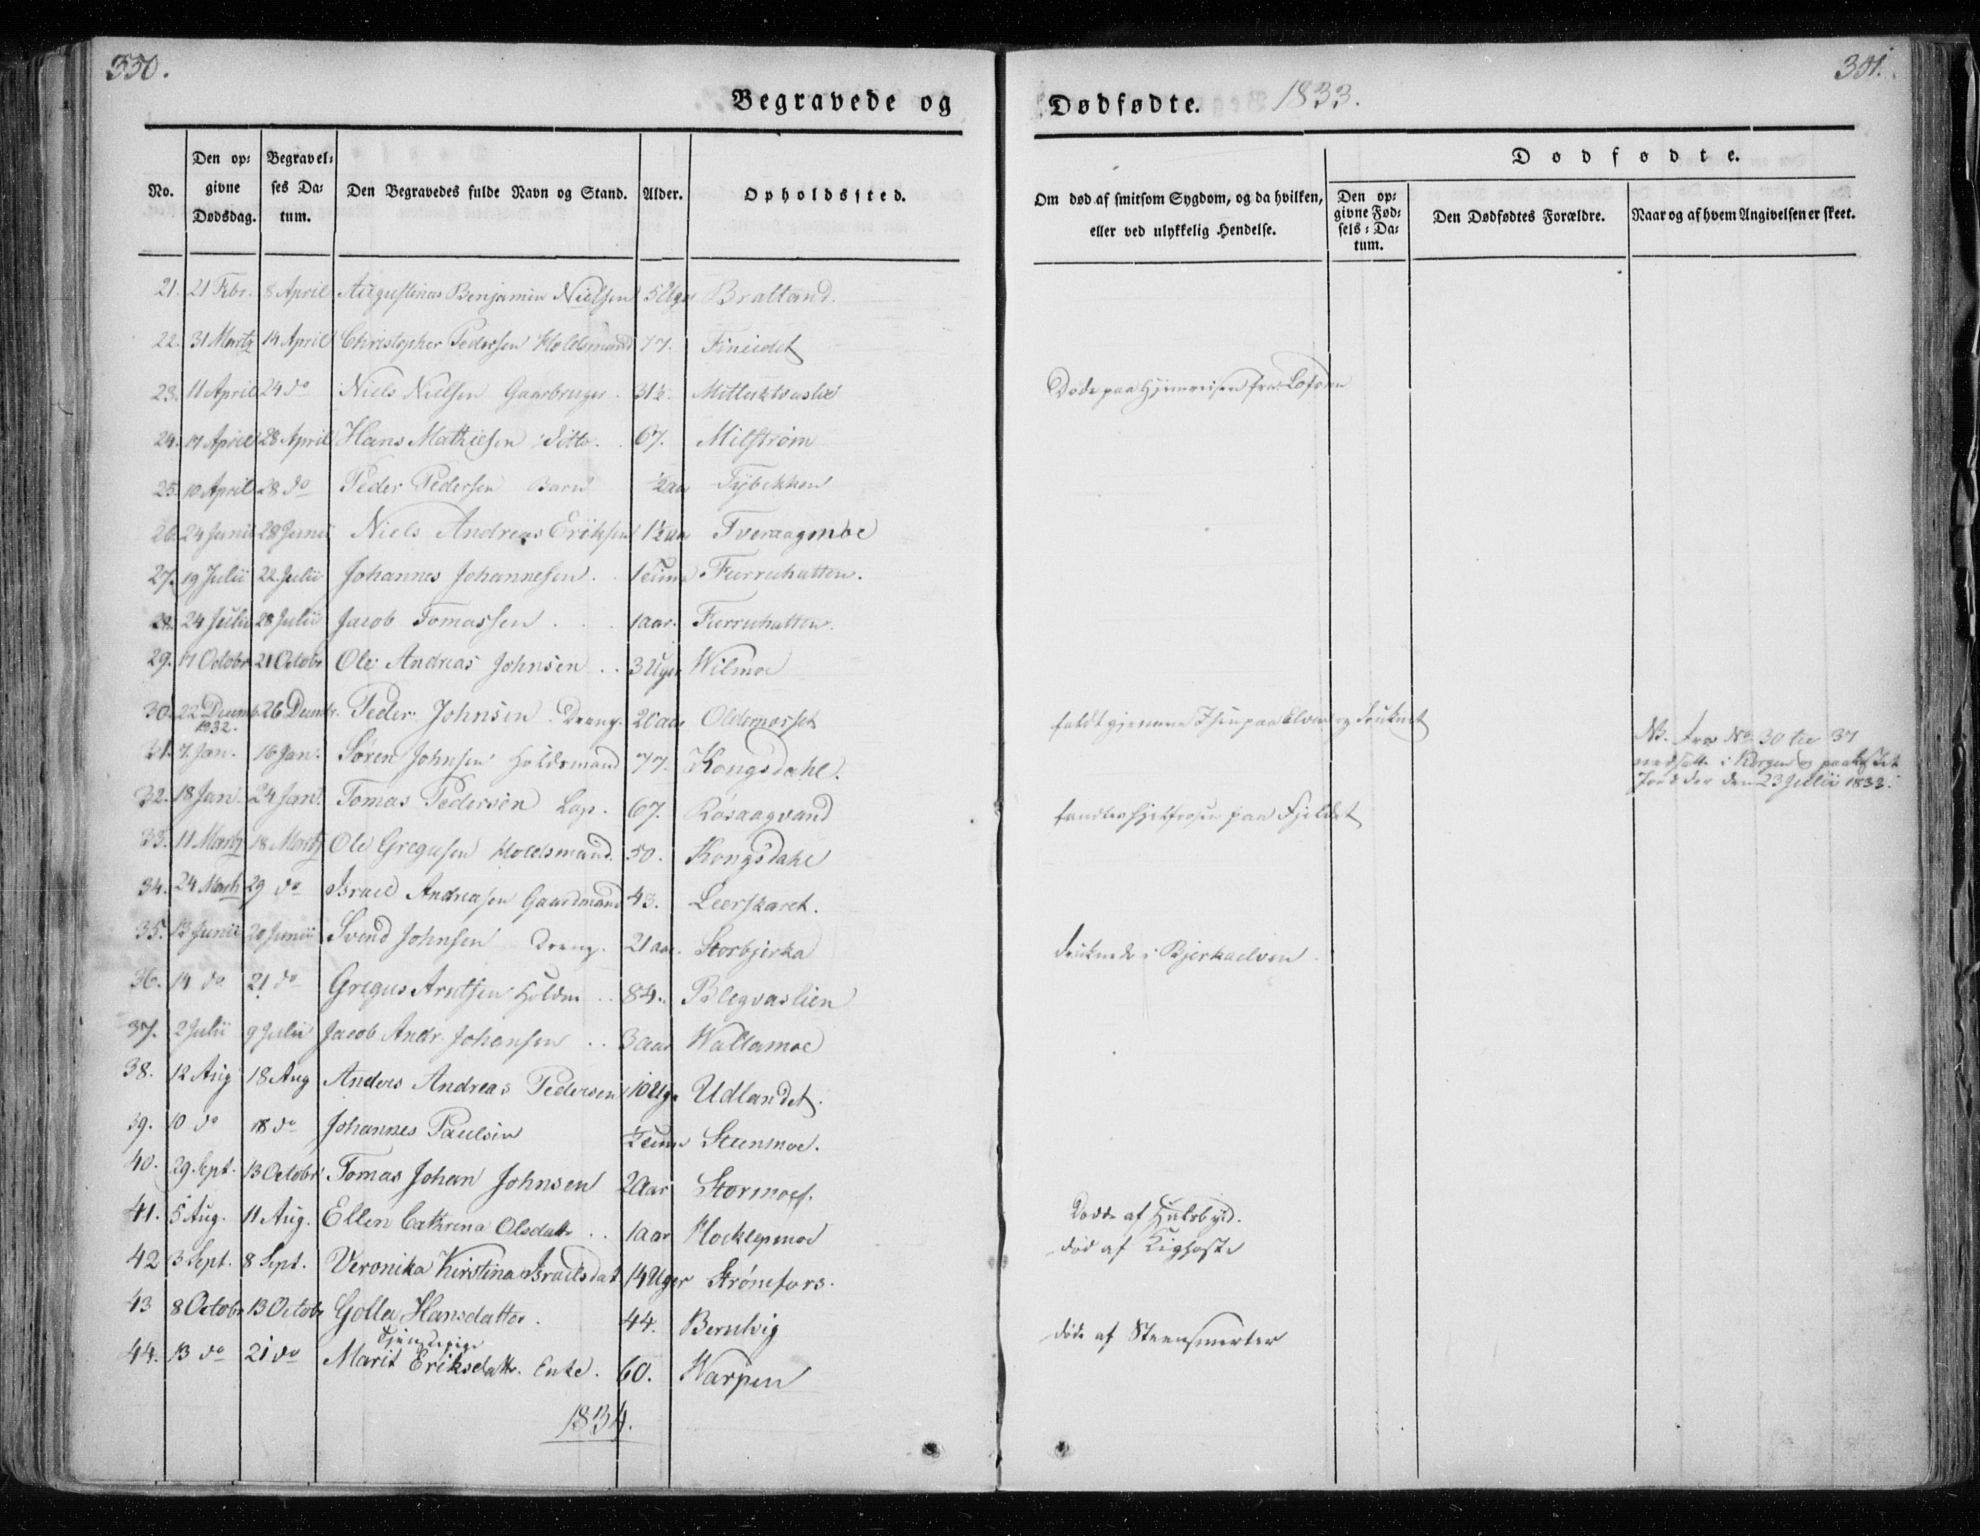 350.
351.
Begravede og
Dødfødte. 1833.
No.
Den op-
givne
Dødsdag.
Begravel-
ses Da-
tum.
Den Begravedes fulde Navn og Stand.
Alder.
Opholdssted.
Om død af smitsom Sygdom, og da hvilken,
eller ved ulykkelig Hendelse.
Dødfødte.
Den op-
givne Fød-
sels-Da-
tum.
Den Dødfødtes Forældre.
Naar og af hvem Angivelsen er skeet.
21. 21 Febr. 8 April Augustinus Benjamin Nielsen 5 Uger Bratland.
22. 31 Martz 14 April Christopher Pedersen Holdsmand 77. Fineidet
23. 11 April 24 do Niels Nielsen Gaarbruger 31½ Døde paa Hjemreisen fra Lofoden
24. 17 April 28 April Hans Mathiesen ditto. 67. Milstrøm
25. 10 April 28 do Peder Pedersen Barn ½ aar Tybekken
26. 24 Junii 28 Junii Niels Andreas Eriksen 1½ aar Tveraagmoe
27. 19 Julii 22 Julii Johannes Johannesen 1 Furruhatten.
28. 24 Julii 28 Julii Jacob Tomassen 1 aar. Furruhatten.
29. 17 Octobr 21 Octobr Ole Andreas Johnsen 3 Uger Wilmoe
30. 22 Decemb. 1932. 26 Decembr. Peder Johnsen Dreng. 20 aar Olderneset faldt gjennem Isen paa Elven og druknet
31. 7 Jan. 16 Jan. Søren Johnsen Holdsmand 77. Kongsdahl.
NB. Fra No. 30 til 37
nedsatte i Korgen og paakastet
Jord der den 23 Julii 1833.
32. 18 Jan. 24 Jan. Tomas Pedersen Lap. 67. Røsaagvand fandtes ihjelfrosen paa Fjeldet
33. 11 Martz 18 Martz Ole Gregusen Holdsmand. 50. Kongsdahl
34. 24 Martz 29 do Israel Andreasen Gaardmand 43. Leerskaret.
35. 13 Junii 20 Junii Svend Johnsen Dreng. 21 aar. Storbjerka druknede i Bjerkaelven.
36. 14 do 21 do Gregus Arntsen Holdm 84. Blegvaslien
37. 2 Julii 9 Julii Jacob Andr. Johansen 3 aar Wallamoe
38. 12 Aug 18 Aug Anders Andreas Pedersen 10 Ug. Udlandet.
39. 10 do 18 do Johannes Paulsen ½ Steenmoe.
40. 29. Sept. 13 Octobr Tomas Johan Johnsen 2 Aar Stormoe.
41. 5 Aug. 11 Aug. Ellen Cathrina Olsdatr 1 aar Døde af Halsbyld.
42 3 Sept. 8 Sept. Veronika Kirstina Israelsdat 14 Uger Strømfors. død af Kighoste
43 8 Octobr 13 Octobr Golla Hansdatter. Tjenestepige 44. Bernlvig døde af Steensmerter
44. 13 do 21 do Marit Eriksdatr. Enke. 60. Warpen
1834.